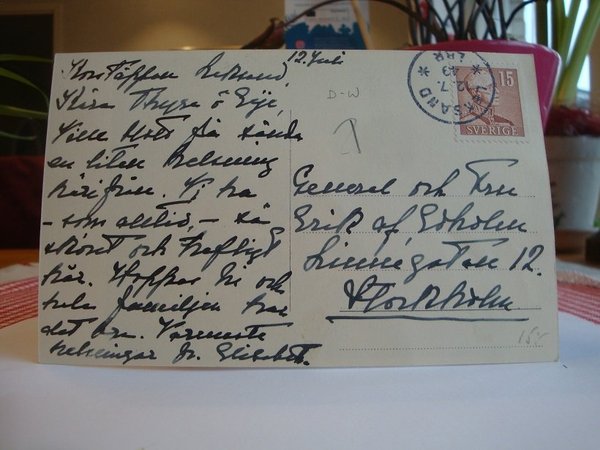 Korstäppan Leksand, 12 Juli
Kära Thyra o Eije,
Ville blott få sända
en liten hälsning
härifrån. Vi ha
- som alltid, - så
skönt och
här. Hoppas Ni och
hela familjen har
det bra. Varmaste
hälsningar fr. Elisabeth.
D-W
1
LEKSAND
12.7.
49
LBR
15
SVERIGE
General och Fru
Erik af Edholm
Linnégatan 12.
Stockholm
15:-